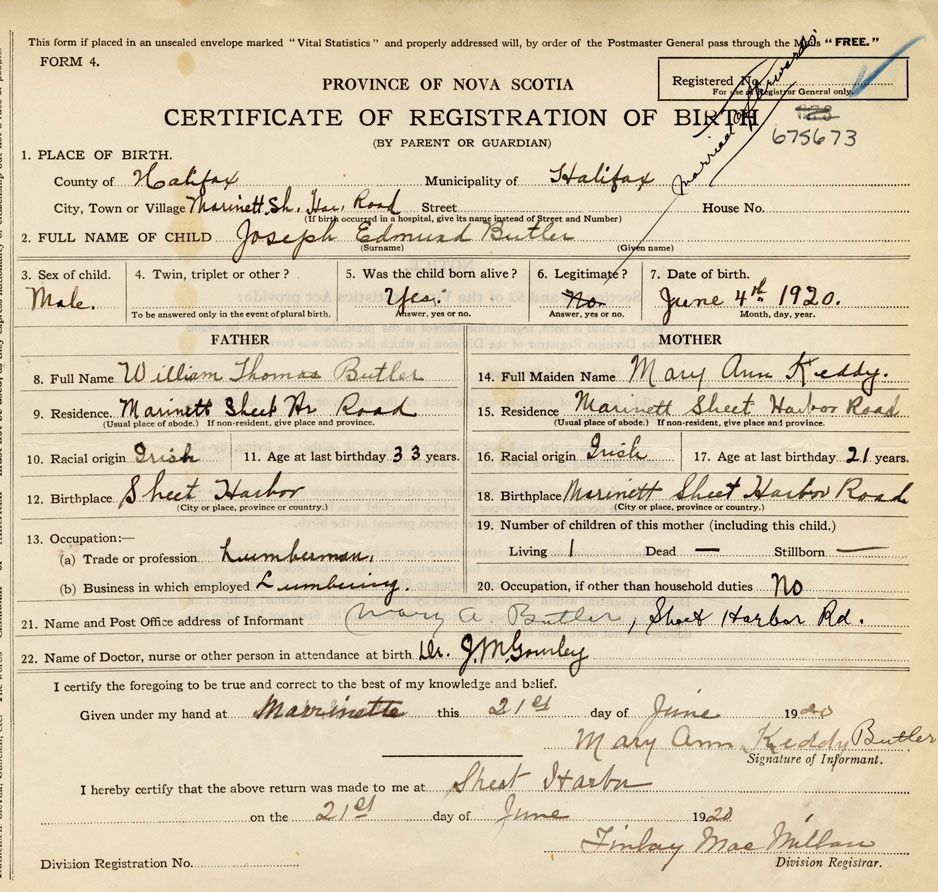 This form if placed in an unsealed envelope marked "Vital Statistics" and properly addressed will, by order of the Postmaster General pass through the Mails "FREE."
FORM 4.
PROVINCE OF NOVA SCOTIA
Registered No.
For use of Registrar General only.
CERTIFICATE OF REGISTRATION OF BIRTH
675673
(BY PARENT OR GUARDIAN)
married afterwards
1. PLACE OF BIRTH.
County of Halifax Municipality of Halifax
City, Town or Village Marinett Sh. Har. Road Street House No.
(If birth occurred in a hospital, give its name instead of Street and Number)
2. FULL NAME OF CHILD Joseph Edmund Butler
(Surname) (Given name)
3. Sex of child. 4. Twin, triplet or other? 5. Was the child born alive? 6. Legitimate? 7. Date of birth.
Male. Yes. No June 4th 1920.
To be answered only in the event of plural birth. Answer, yes or no. Answer, yes or no. Month, day, year.
FATHER
8. Full Name William Thomas Butler
9. Residence. Marinett Sheet Hr Road
(Usual place of abode.) If non-resident, give place and province.
10. Racial origin Irish 11. Age at last birthday 33 years.
12. Birthplace Sheet Harbor
(City or place, province or country.)
13. Occupation:—
(a) Trade or profession Lumberman.
(b) Business in which employed Lumbering.
MOTHER
14. Full Maiden Name Mary Ann Keddy.
15. Residence Marinett Sheet Harbor Road
(Usual place of abode.) If non-resident, give place and province.
16. Racial origin Irish 17. Age at last birthday 21 years.
18. Birthplace Marinett Sheet Harbor Road
(City or place, province or country.)
19. Number of children of this mother (including this child.)
Living 1 Dead — Stillborn —
20. Occupation, if other than household duties No
21. Name and Post Office address of Informant Mary A. Butler, Sheet Harbor Rd.
22. Name of Doctor, nurse or other person in attendance at birth Dr. J. McGourley
I certify the foregoing to be true and correct to the best of my knowledge and belief.
Given under my hand at Marrinette this 21st day of June 1920
Mary Ann Keddy Butler
Signature of Informant.
I hereby certify that the above return was made to me at Sheet Harbor
on the 21st day of June 1920
Finlay MacMillan
Division Registration No. Division Registrar.